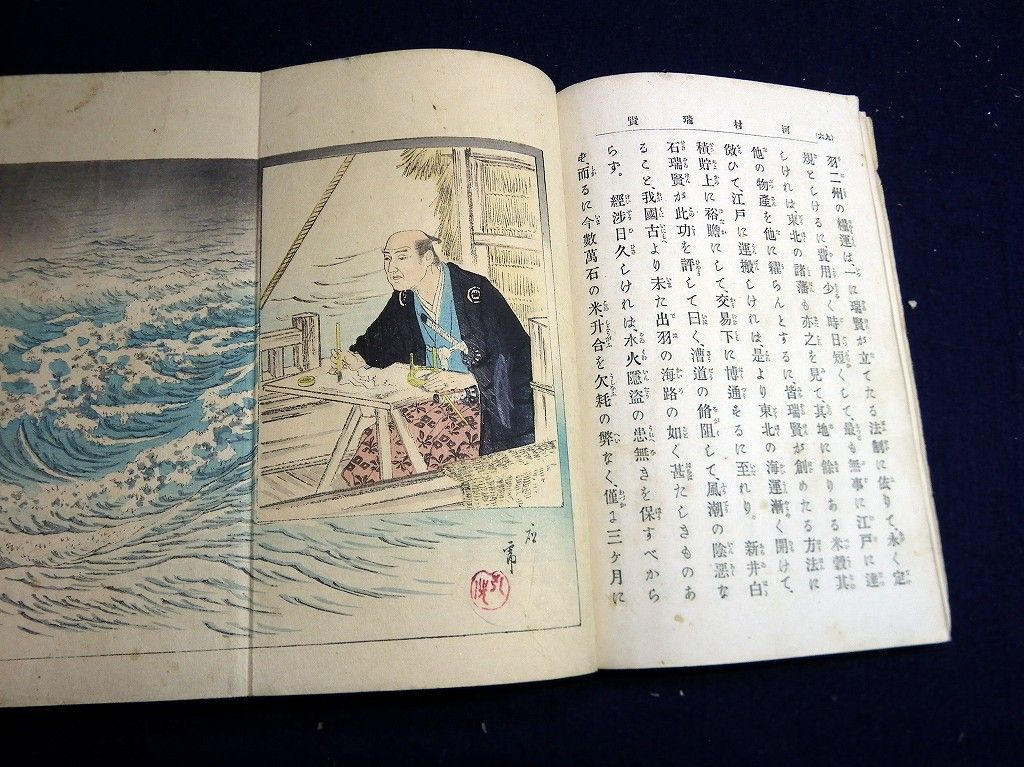 河村瑞賢
(九六)
羽二州の糧運は、一に瑞賢が立てたる法制に依りて、永く定
規としけるに、費用少く時日短くして、最も無事に江戸に達
しければ東北の諸藩も亦之を見て其地に餘りある米穀其
他の物產を他に糶らんとするに皆瑞賢が創めたる方法に
倣ひて、江戸に運搬しければ、是より東北の海運漸く開けて、
積貯上に裕贍にして、交易下に博通をるに至れり。 新井白
石瑞賢が此功を評して曰く、漕道の脩阻して、風潮の陰悪な
ること、我國古より未た出羽の海路の如く甚たしきものあ
らず。 經渉日久しければ、水火隱盜の患無きを保すべから
ぞ、而るに今數萬石の米升合を欠耗の弊なく、僅よ三ヶ月に